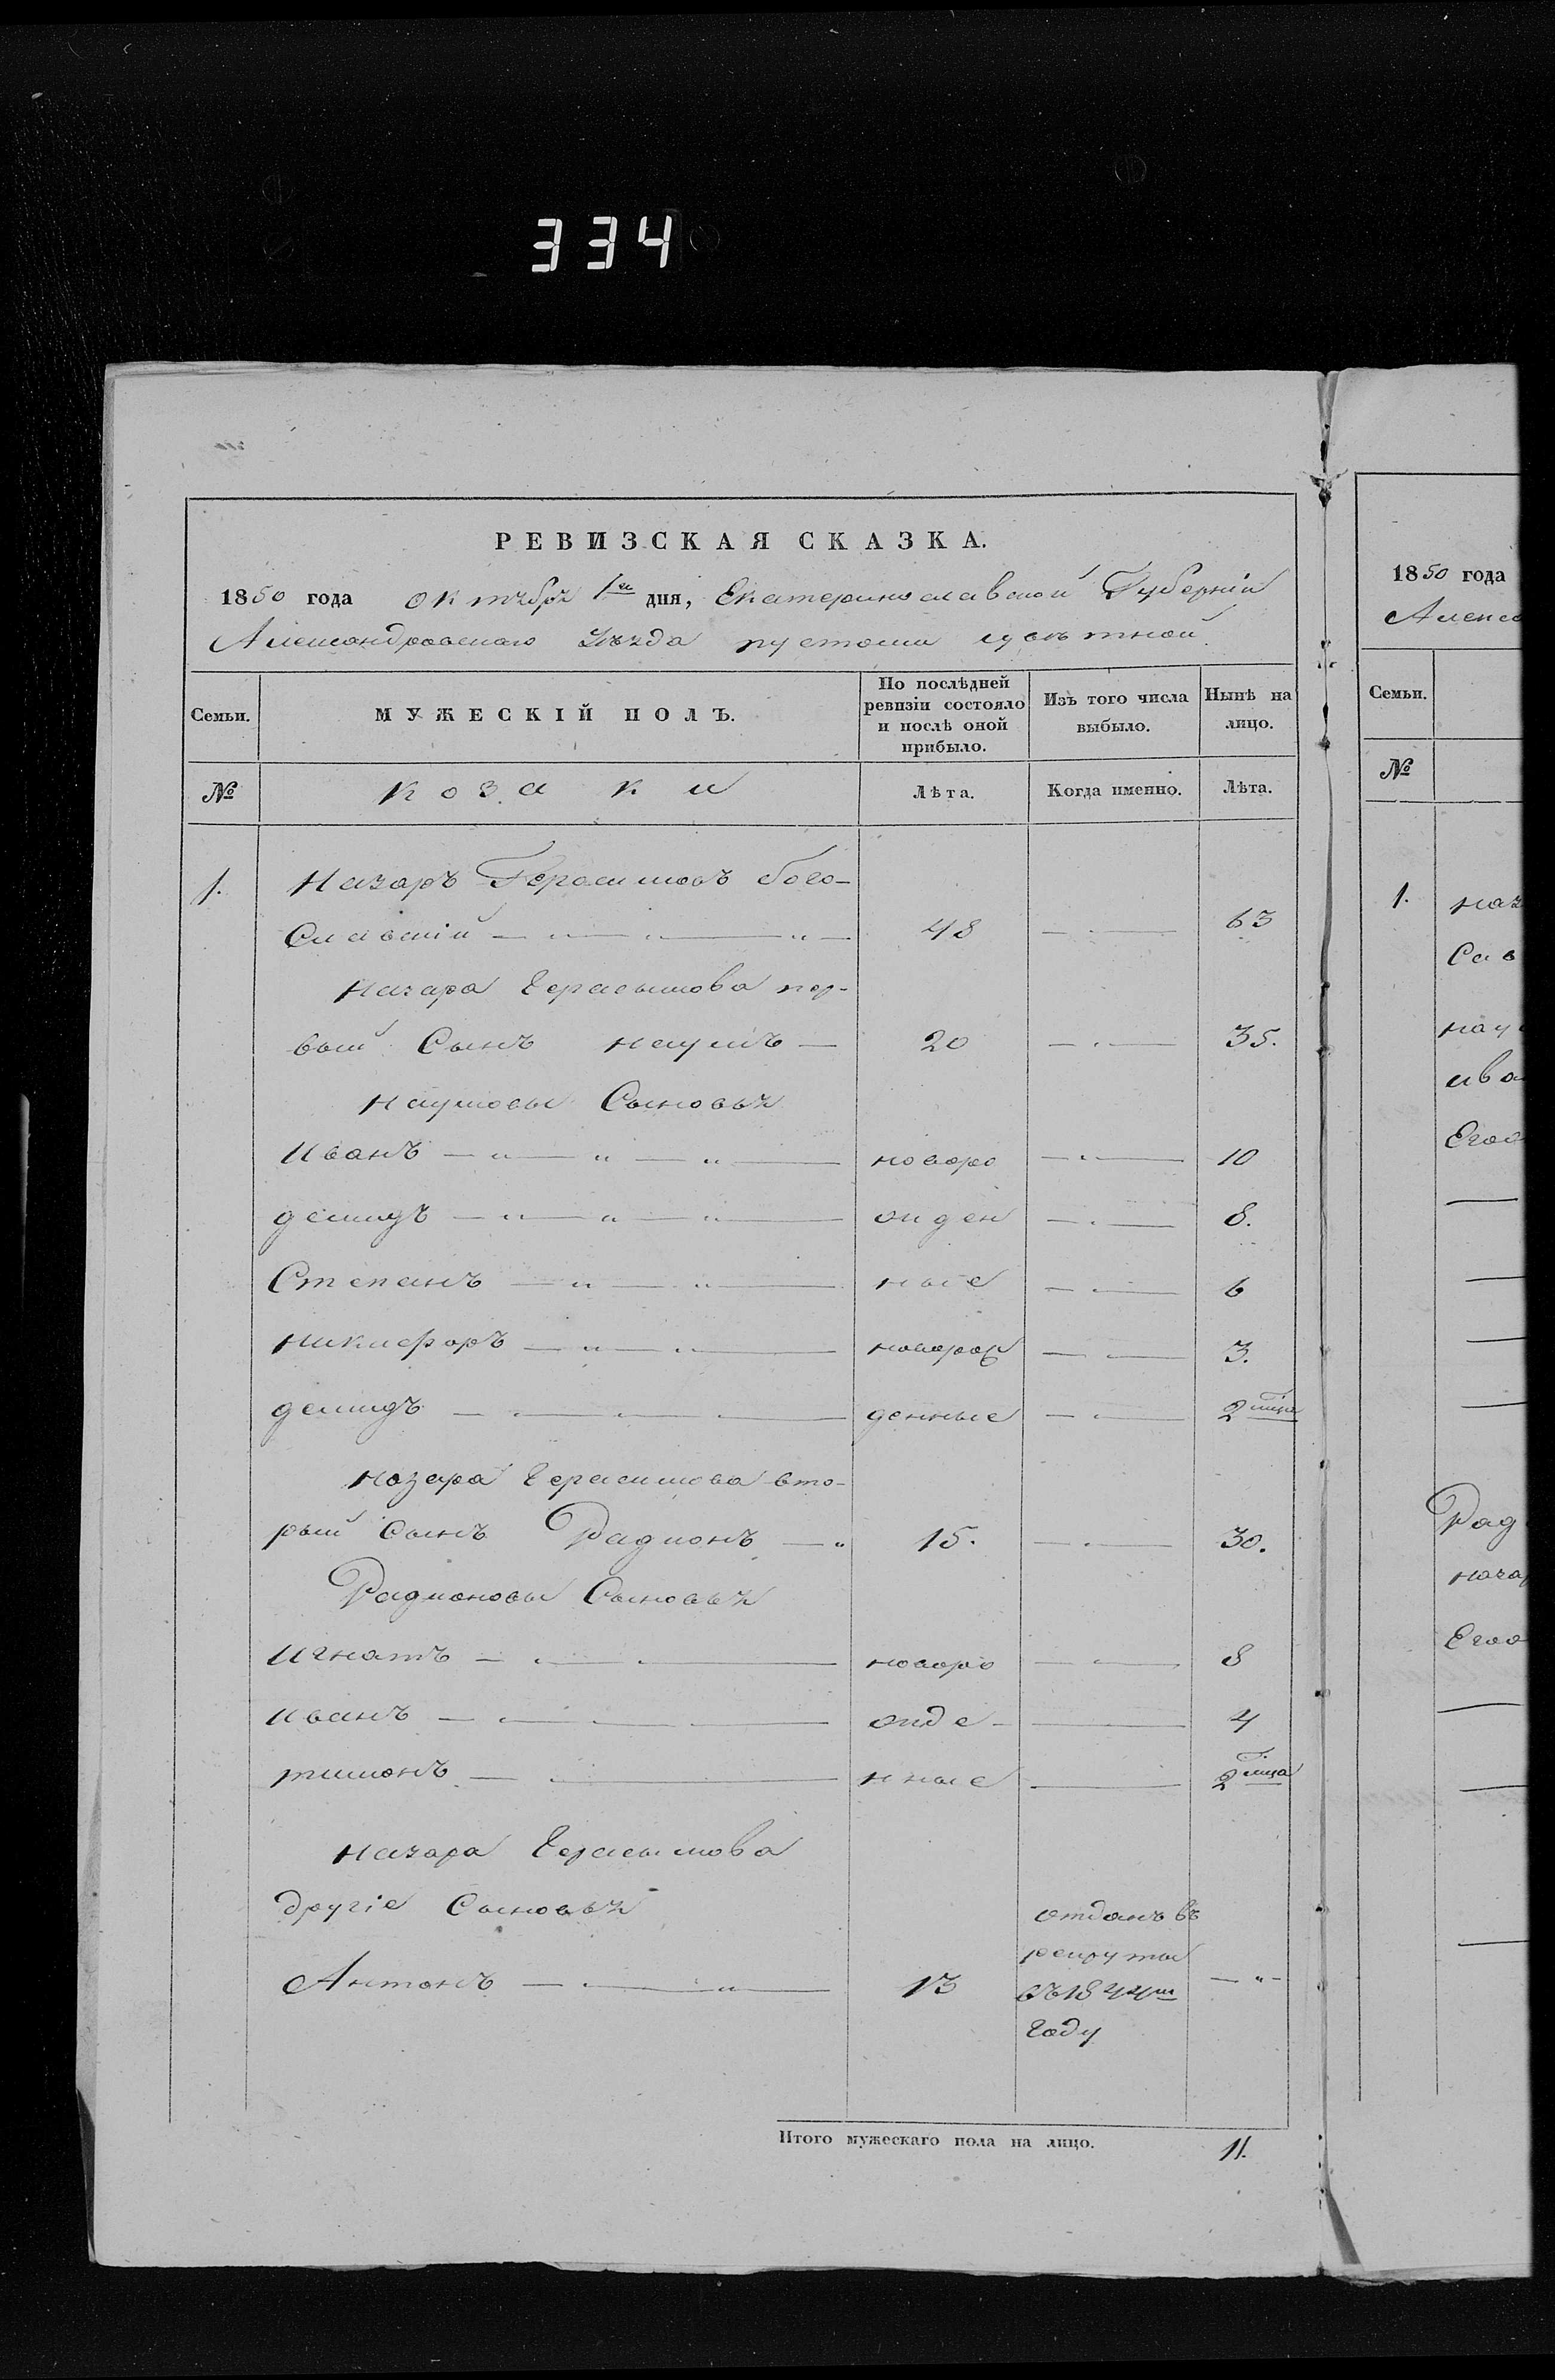 334
РЕВИЗСКАЯ СКАЗКА.
1850 года октября 1го дня, Екатеринославской Губерніи
Александровскаго Уѣзда пустоши
Семьи.
МУЖЕСКІЙ ПОЛЪ.
По послѣдней ревизіи состояло и послѣ оной прибыло.
Изъ того числа выбыло.
Нынѣ на лицо.
№
козаки
Лѣта.
Когда именно.
Лѣта.
1. Назаръ Герасимовъ бого-
славскій 48 63
Назара Герасимова пер-
вый Сынъ наумъ 20 35.
наумовы Сыновья
иванъ новоро 10
демидъ жден 8.
Степанъ ные 6
никифоръ новорож 3.
демидъ денные 2 мѣца
назара Герасимова вто-
рый Сынъ Радионъ 15. 30.
Радионовы Сыновья
игнатъ новоро 8
иванъ жде- 4
тимонъ нные 2 мѣца
назара Герасимова
другіе Сыновья
Антонъ 13 отданъ въ
рекруты
въ 1844м
Году
Итого мужескаго пола на лицо. 11.
1850 года
Алекса
Семьи.
№
1. наз
Сав
нау
ива
Его
Рад
наза
Его